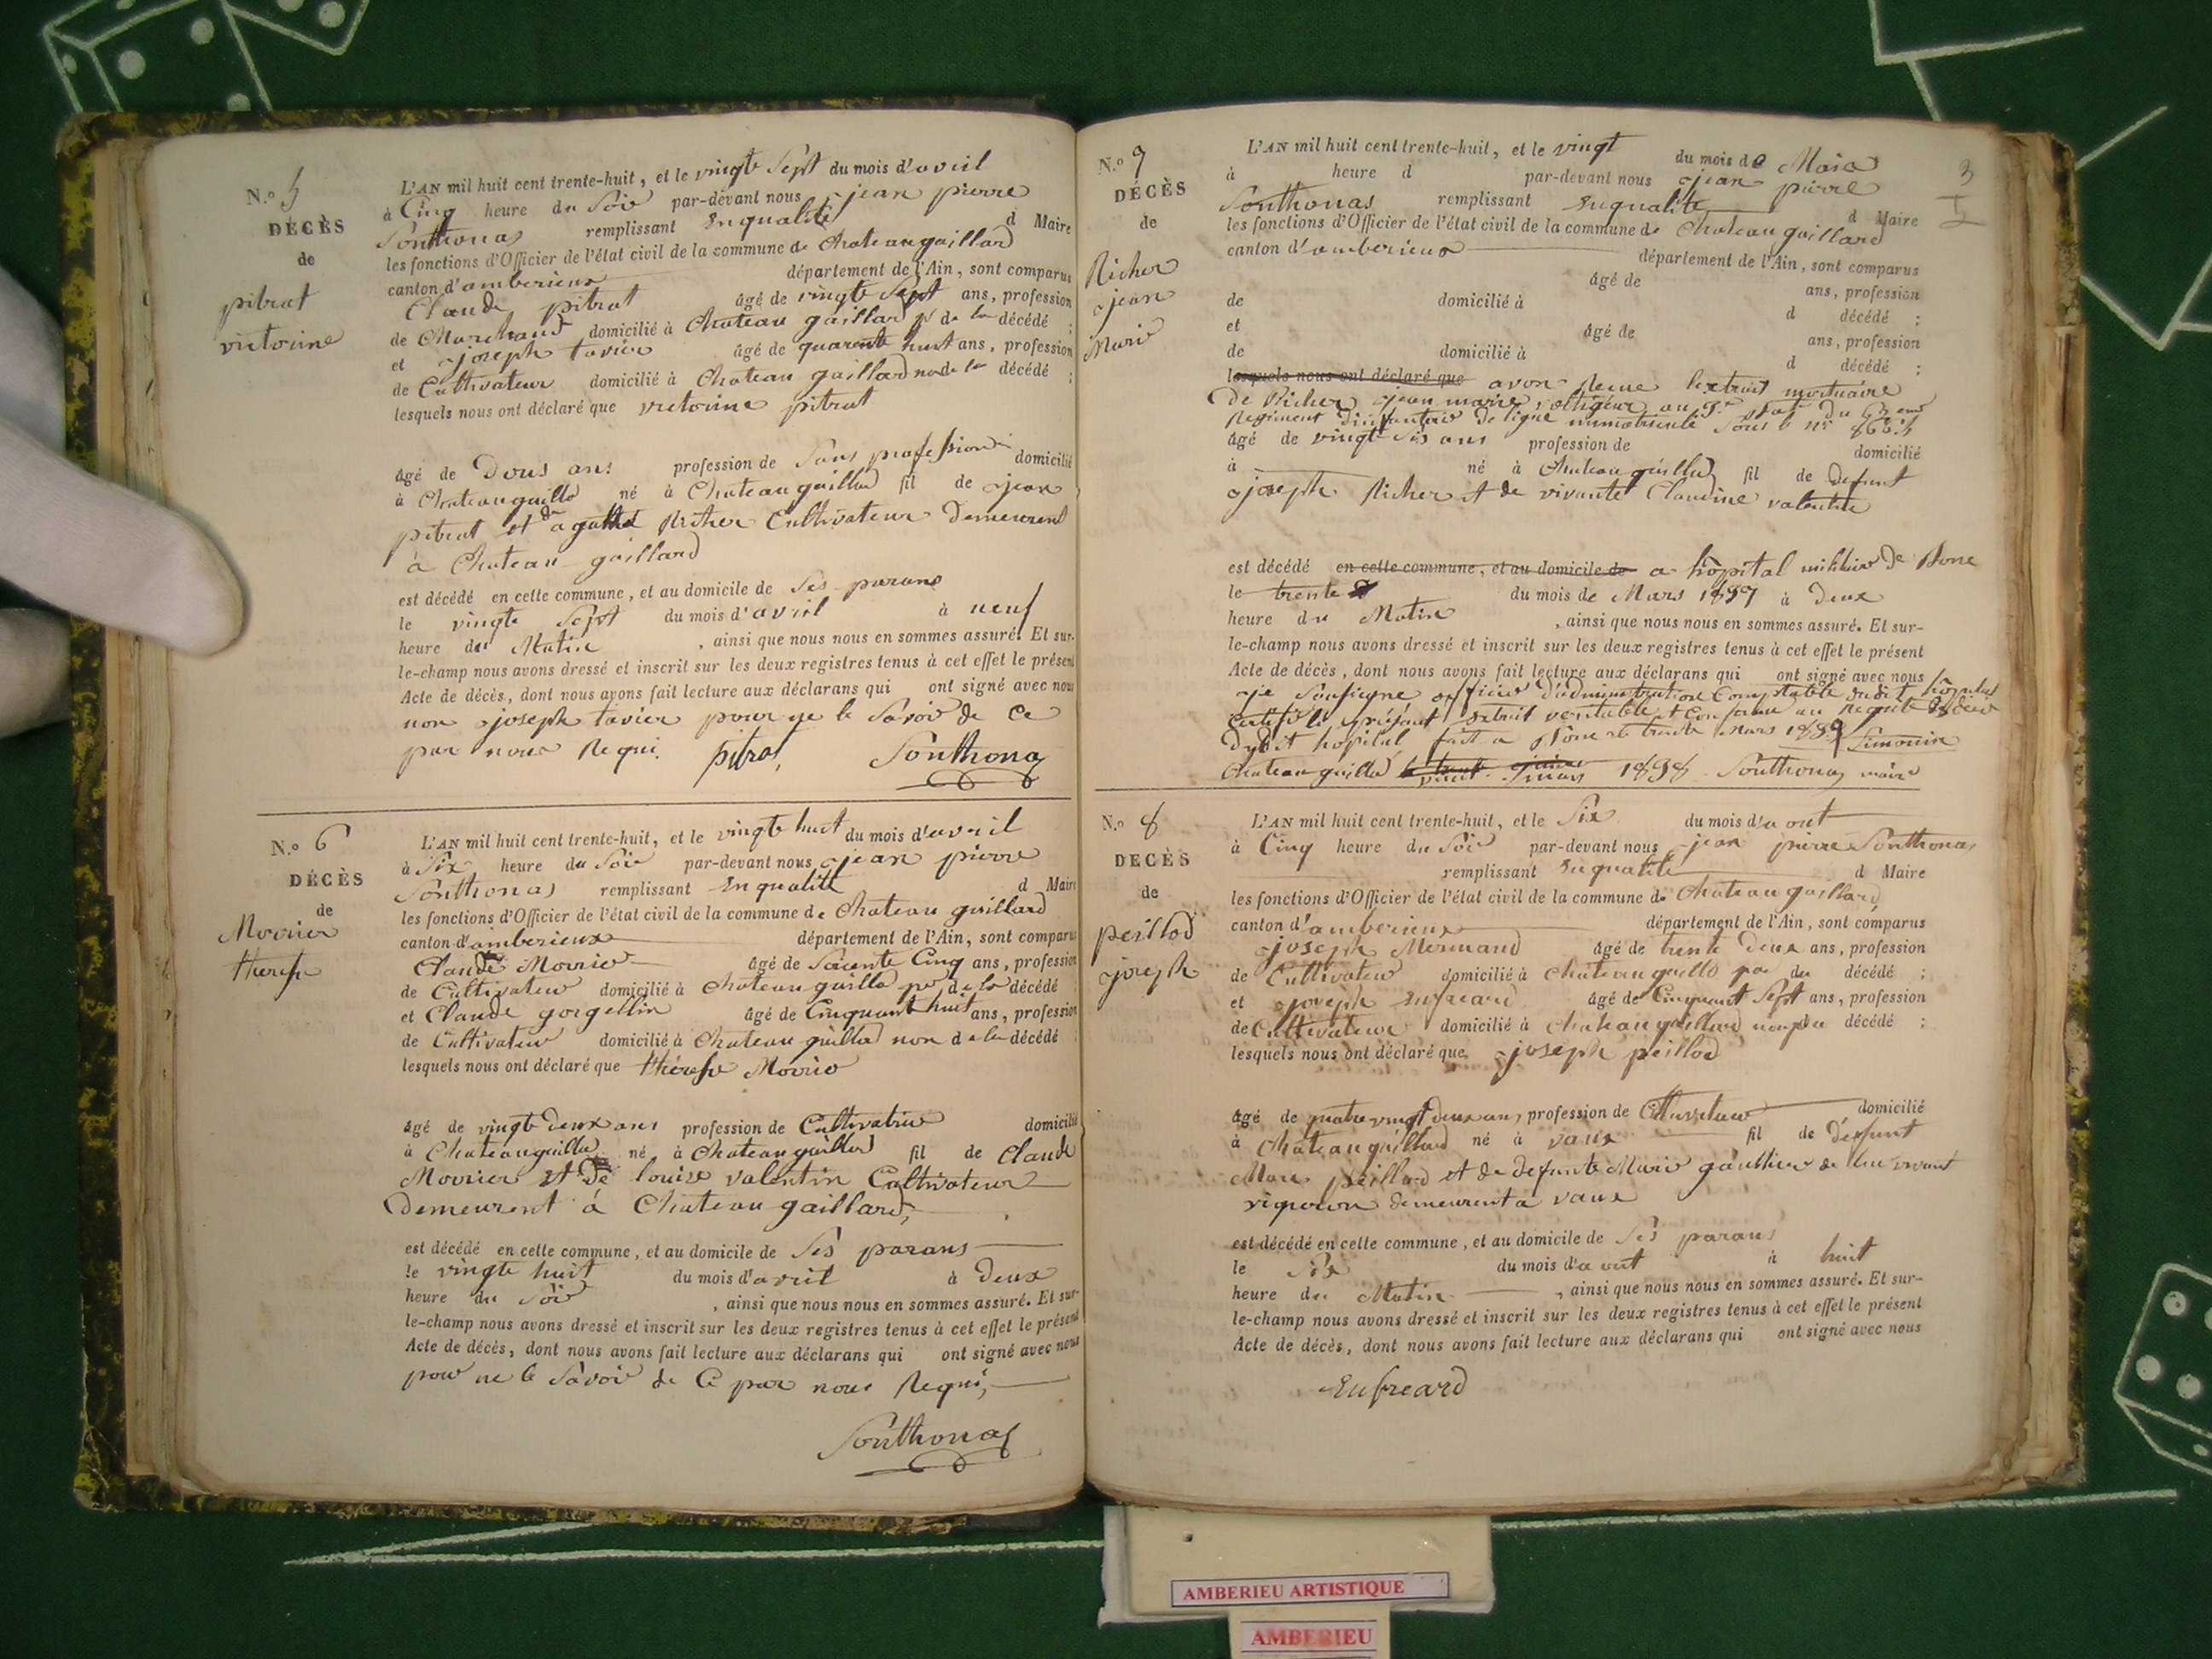 N.o 5
DÉCÈS
de
pitrat
victoirine
L'AN mil huit cent trente-huit, et le vingt Sept du mois d'avril
à Cinq heure du Soir par-devant nous jean pierre
Sonthonas remplissant En qualité d Maire
les fonctions d'Officier de l'état civil de la commune de Chateaugaillard
canton d'amberieux département de l'Ain, sont comparus
Claude pitrat âgé de vingt Sept ans, profession
de Marchand domicilié à Chateau gaillard de la décédé ;
et joseph tavier âgé de quarente huit ans, profession
de Cultivateur domicilié à Chateau gaillard de la décédé ;
lesquels nous ont déclaré que victoirine pitrat
âgé de Dous ans profession de Sans profession domicilié
à Chateaugailld né à Chateaugaillad fil de jean
pitrat et de agathe Richer Cultivateur Demeurent
à Chateau gaillard
est décédé en cette commune, et au domicile de Ses parans
le vingt Sept du mois d'avril à neuf
heure du Matin, ainsi que nous nous en sommes assuré. Et sur-
le-champ nous avons dressé et inscrit sur les deux registres tenus à cet effet le présent
Acte de décès, dont nous avons fait lecture aux déclarans qui ont signé avec nous
non joseph tavier pour ne le Savoir de Ce
par nous Requi. pitrat, Sonthonas
N.o 6
DÉCÈS
de
Movrier
therese
L'AN mil huit cent trente-huit, et le vingt huit du mois d'avril
à Six heure du Soir par-devant nous jean pierre
Sonthonas remplissant En qualité d Maire
les fonctions d'Officier de l'état civil de la commune de Chateau gaillard
canton d'amberieux département de l'Ain, sont comparus
Claude Movrier âgé de Soicente Cinq ans, profession
de Cultivateur domicilié à Chateau gailla de la décédé
et Claude gorgellin âgé de Cinquant huit ans, profession
de Cultivateur domicilié à Chateau gaillad non de la décédé
lesquels nous ont déclaré que thérese Movrier
âgé de vingt deux ans profession de Cultivatrice domicilié
à Chateaugailla né à Chateaugaillad fil de Claude
Movrier et de louise valentin Cultivateur
Demeurent à Chateau gaillard,
est décédé en cette commune, et au domicile de Ses parans
le vingt huit du mois d'avril à Deux
heure du Soir, ainsi que nous nous en sommes assuré. Et sur-
le-champ nous avons dressé et inscrit sur les deux registres tenus à cet effet le présent
Acte de décès, dont nous avons fait lecture aux déclarans qui ont signé avec nous
pour ne le Savoir de Ce par nous Requi,
Sonthonas
N.o 7
DÉCÈS
de
Richer
jean
Marie
3
L'AN mil huit cent trente-huit, et le vingt du mois de Mars
à heure d par-devant nous jean pierre
Sonthonas remplissant En qualité d Maire
les fonctions d'Officier de l'état civil de la commune de Chateau gaillard
canton d'amberieux département de l'Ain, sont comparus
âgé de ans, profession
de domicilié à d décédé ;
et âgé de ans, profession
de domicilié à d décédé ;
lesquels nous ont déclaré que avon Recue lextrait mortuaire
de Richer jean marie voltigeur au du
Regiment dinfanterie de ligne Sous le
âgé de vingt Sis ans profession de domicilié
à né à Chateaugaillad fil de Defunt
joseph Richer et de vivante Claudine valentin
est décédé en cette commune, et au domicile de a hôpital militaire de Bone
le trente du mois de Mars 1837 à Deux
heure du Matin, ainsi que nous nous en sommes assuré. Et sur-
le-champ nous avons dressé et inscrit sur les deux registres tenus à cet effet le présent
Acte de décès, dont nous avons fait lecture aux déclarans qui ont signé avec nous
je Sousigné officier d'administration Comptable dudit hôpital
Certifie le présent Extrait veritable et Conforme au Registre
Dudit hôpital fait a Bone le trente Mars Simonin
Chateaugaillad 1838 Sonthonas maire
N.o 8
DÉCÈS
de
peillod
joseph
L'AN mil huit cent trente-huit, et le Six du mois d'aout
à Cinq heure du Soir par-devant nous jean pierre Sonthonas
remplissant En qualité d Maire
les fonctions d'Officier de l'état civil de la commune de Chateau gaillard
canton d'amberieux département de l'Ain, sont comparus
joseph Mermand âgé de trente Deux ans, profession
de Cultivateur domicilié à Chateaugailld du décédé ;
et joseph Enfreard âgé de Cinquant Sept ans, profession
de Cultivateur domicilié à Chateaugaillard décédé ;
lesquels nous ont déclaré que joseph peillod
âgé de quatrevingt deux ans profession de Cultivateur domicilié
à Chateaugaillard né à vaux fil de Defunt
Marc peillod et de Defunte Marie gauthier de leur vivant
vigneron demeurent a vaux
est décédé en cette commune, et au domicile de Ses parans
le Six du mois d'aout à huit
heure du Matin, ainsi que nous nous en sommes assuré. Et sur-
le-champ nous avons dressé et inscrit sur les deux registres tenus à cet effet le présent
Acte de décès, dont nous avons fait lecture aux déclarans qui ont signé avec nous
Enfreard
AMBERIEU ARTISTIQUE
AMBERIEU